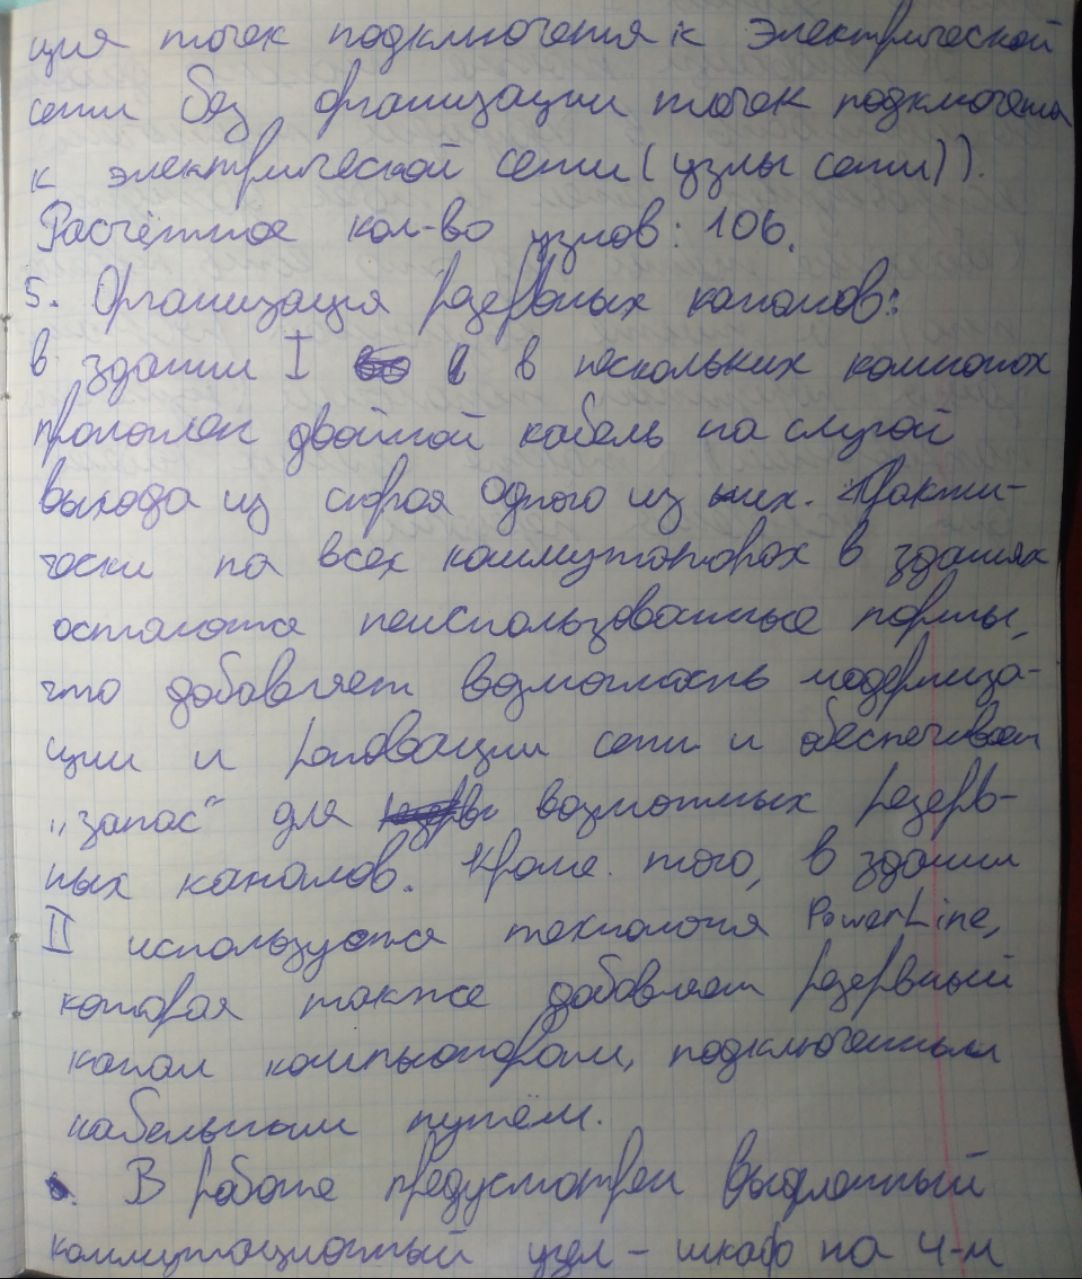 ция точек подключения к электрической
сети без организации точек подключения
к электрической сети (узлы сети)).
Расчётное кол-во узлов: 106.
5. Организация резервных каналов:
в здании I в нескольких комнатах
проложен двойной кабель на случай
выхода из строя одного из них. Практи-
чески на всех коммутаторах в зданиях
остаются неиспользованные порты,
что добавляет возможность модерниза-
ции и реновации сети и обеспечивает
„запас“ для возможных резерв-
ных каналов. Кроме того, в здании
II используется технология PowerLine,
которая также добавляет резервный
канал компьютерам, подключенным
кабельным путём.
В работе предусмотрен выделенный
коммутационный узел - шкаф на 4-м